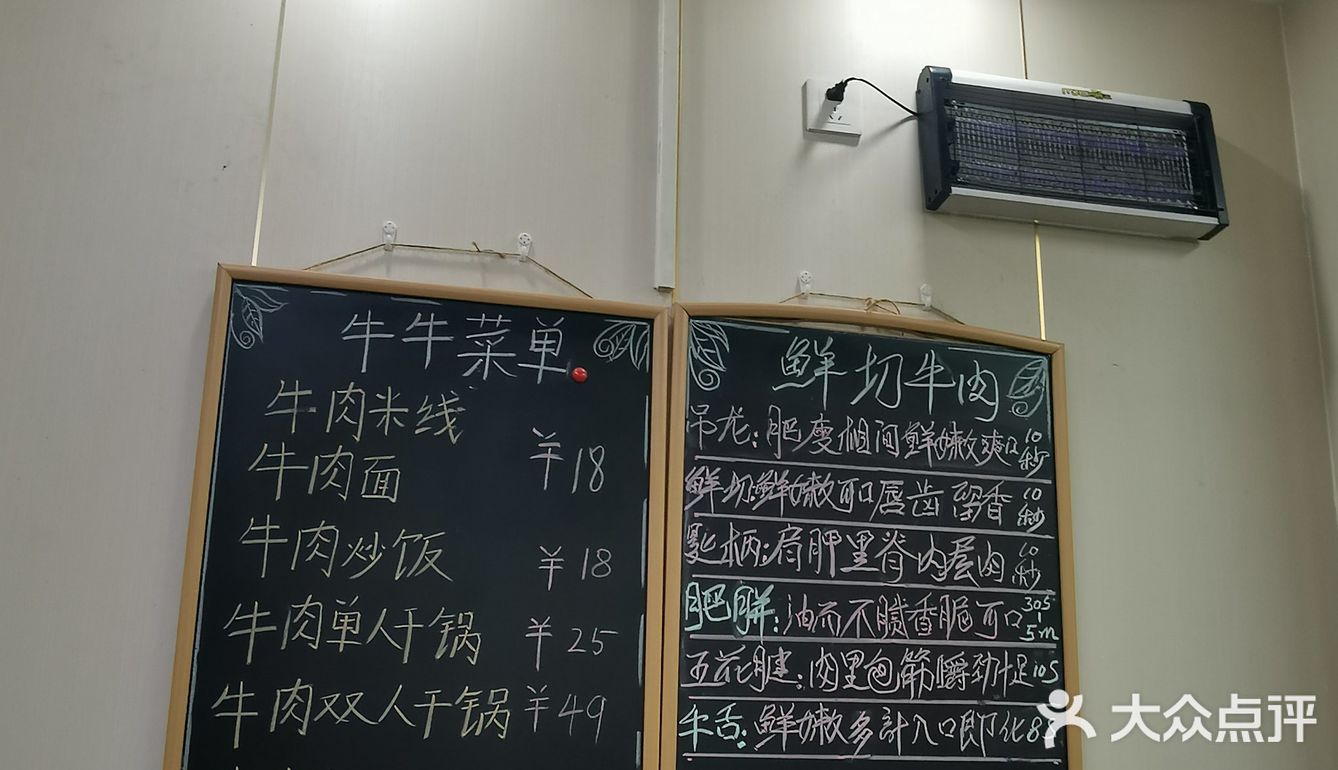 牛牛菜单
牛肉米线
牛肉面 ¥18
牛肉炒饭 ¥18
牛肉单人干锅 ¥25
牛肉双人干锅 ¥49
鲜切牛肉
吊龙:肥瘦相间鲜嫩爽口 10秒
鲜切:鲜嫩可口唇齿留香 10秒
匙柄:肩胛里脊内层肉 10秒
肥胼:油而不腻香脆可口 30s-5m
五花腱:肉里包筋嚼劲十足 10s
牛舌:鲜嫩多計入口即化 8
大众点评